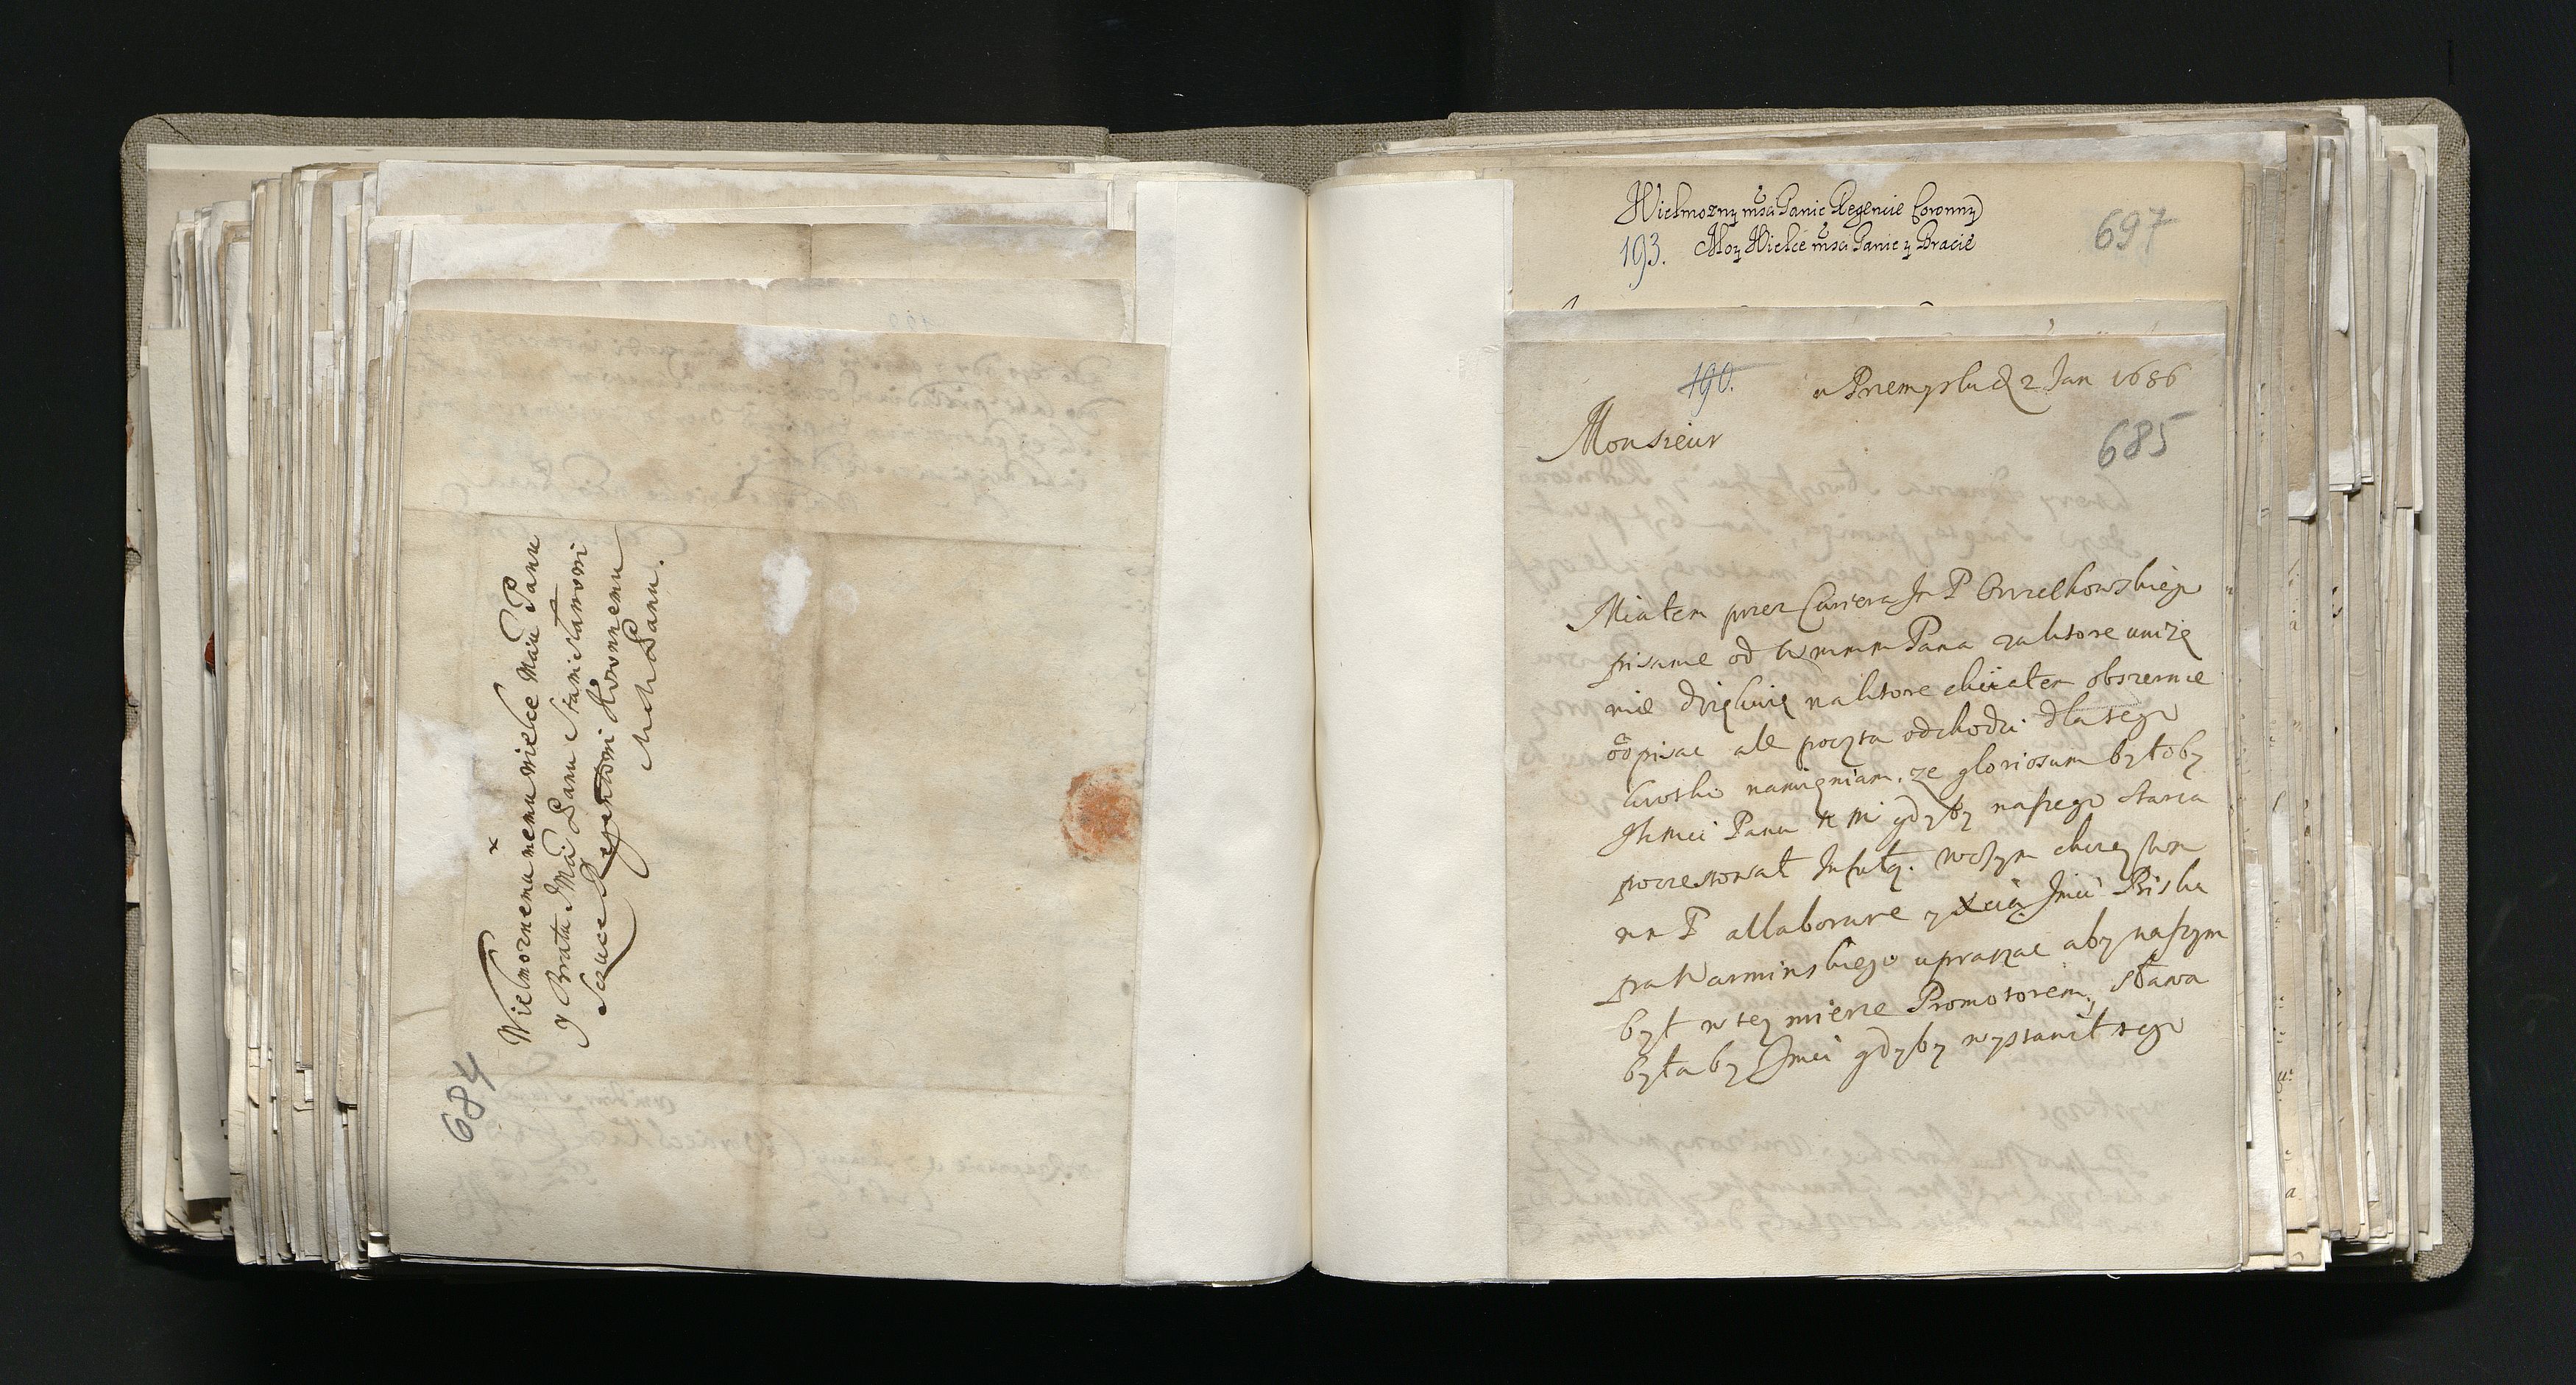 684
Wielmoznemu memu wielce Mciu Panu
y Bratu Jmci Panu Stanisławowi
Szuce Regentowi Koronnemu
M M Panu.
Wielmozny msci Panie Regencie Coronny
193. Moy Wielce msci Panie y Bracie
697
190. w Przemyslu d 2 Jan 1686
Monsieur
685
Miałem przez Curiera Jm P
pisanie od Wmmm Pana za ktore uniże
nie dziękuię na ktore chciałem obszernie
odpisac ale poczta odchodzi dla tego
krotko namięniam. ze gloriosum byłoby
Jhmci Panu gdyby naszego Starca
Infułą. w czym chciey
P allaborare y Xcia Jmci Bisku
pa Warminskiego upraszac aby naszym
był w tey mierze Promotorem, sława
byłaby Jmci gdyby wystawił tego